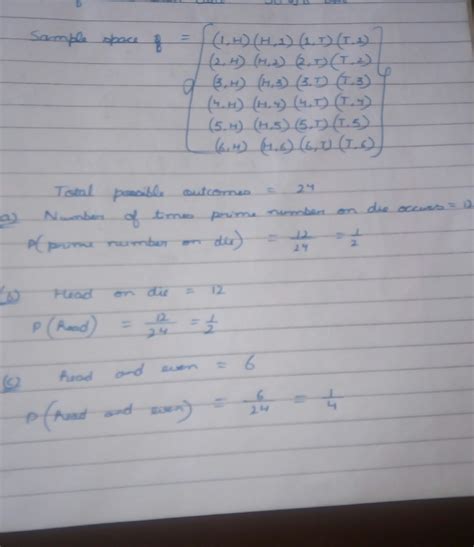 Sample space = (1,H) (H,1) (1,T) (T,1)
(2,H) (H,2) (2,T) (T,2)
(3,H) (H,3) (3,T) (T,3)
(4,H) (H,4) (4,T) (T,4)
(5,H) (H,5) (5,T) (T,5)
(6,H) (H,6) (6,T) (T,6)
Total possible outcomes = 24
a) Number of times prime number on die occurs = 12
P(prime number on die) = 12/24 = 1/2
(b) Head on die = 12
P(Head) = 12/24 = 1/2
(c) Head and even = 6
P(Head and even) = 6/24 = 1/4